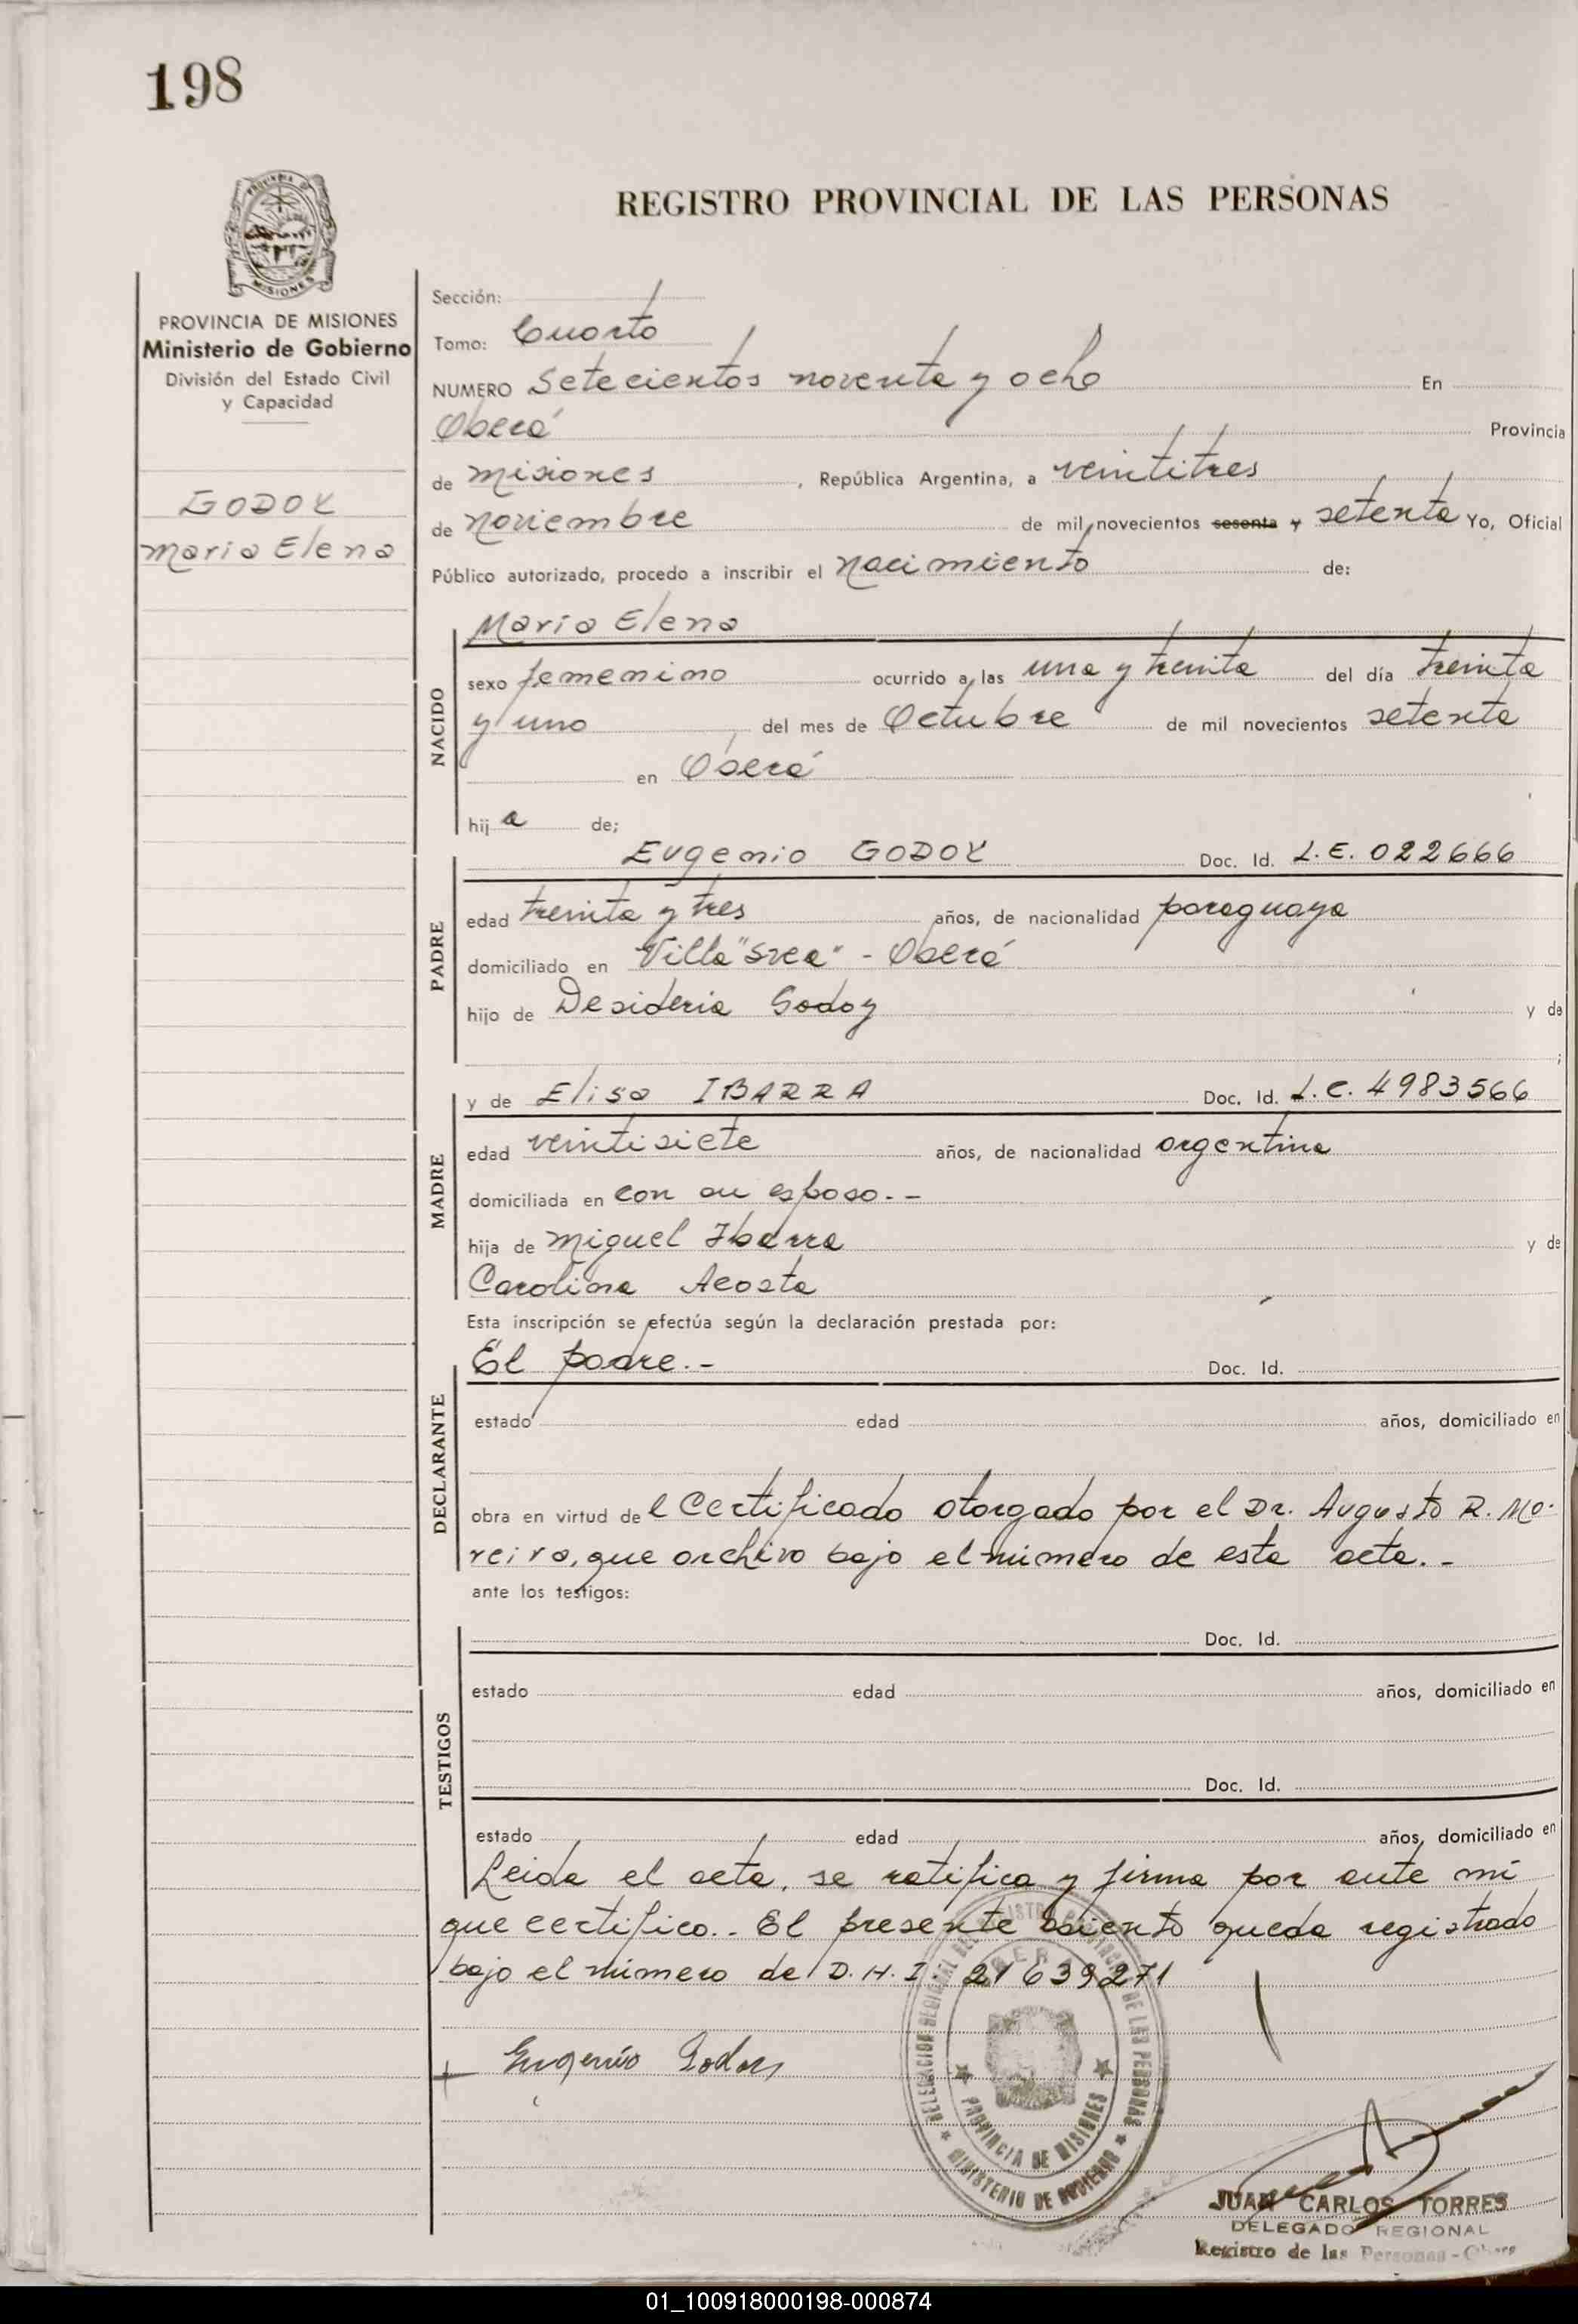 198
REGISTRO PROVINCIAL DE LAS PERSONAS
PROVINCIA DE MISIONES
Ministerio de Gobierno
División del Estado Civil
y Capacidad
GODOY
Maria Elena
Sección:
Tomo: Cuarto
NUMERO Setecientos noventa y ocho En
Oberá Provincia
de Misiones, República Argentina, a veintitres
de noviembre de mil novecientos sesenta y setenta Yo, Oficial
Público autorizado, procedo a inscribir el nacimiento de:
NACIDO
Maria Elena
sexo femenino ocurrido a las una y treinta del día treinta
y uno del mes de Octubre de mil novecientos setenta
en Oberá
hija de;
PADRE
Eugenio GODOY Doc. Id. L.E. 022666
edad treinta y tres años, de nacionalidad paraguaya
domiciliado en Villa "Svea" - Oberá
hijo de Desideria Godoy y de
;
MADRE
y de Elisa IBARRA Doc. Id. L.C. 4983566
edad veintisiete años, de nacionalidad argentina
domiciliada en con su esposo.-
hija de Miguel Ibarra y de
Carolina Acosta
Esta inscripción se efectúa según la declaración prestada por:
DECLARANTE
El padre.- Doc. Id.
estado edad años, domiciliado en
obra en virtud del Certificado otorgado por el Dr. Augusto R. Mo-
reira, que archivo bajo el número de esta acta.-
ante los testigos:
TESTIGOS
Doc. Id.
estado edad años, domiciliado en
Doc. Id.
estado edad años, domiciliado en
Leida el acta, se ratifica y firma por ante mi
que certifico.- El presente asiento queda registrado
bajo el número de D.H.I 21639271
Eugenio Godoy
DELEGACION REGIONAL DEL REGISTRO PROVINCIAL DE LAS PERSONAS
OBERA
PROVINCIA DE MISIONES
MINISTERIO DE GOBIERNO
JUAN CARLOS TORRES
DELEGADO REGIONAL
Registro de las Personas - Obera
01_100918000198-000874